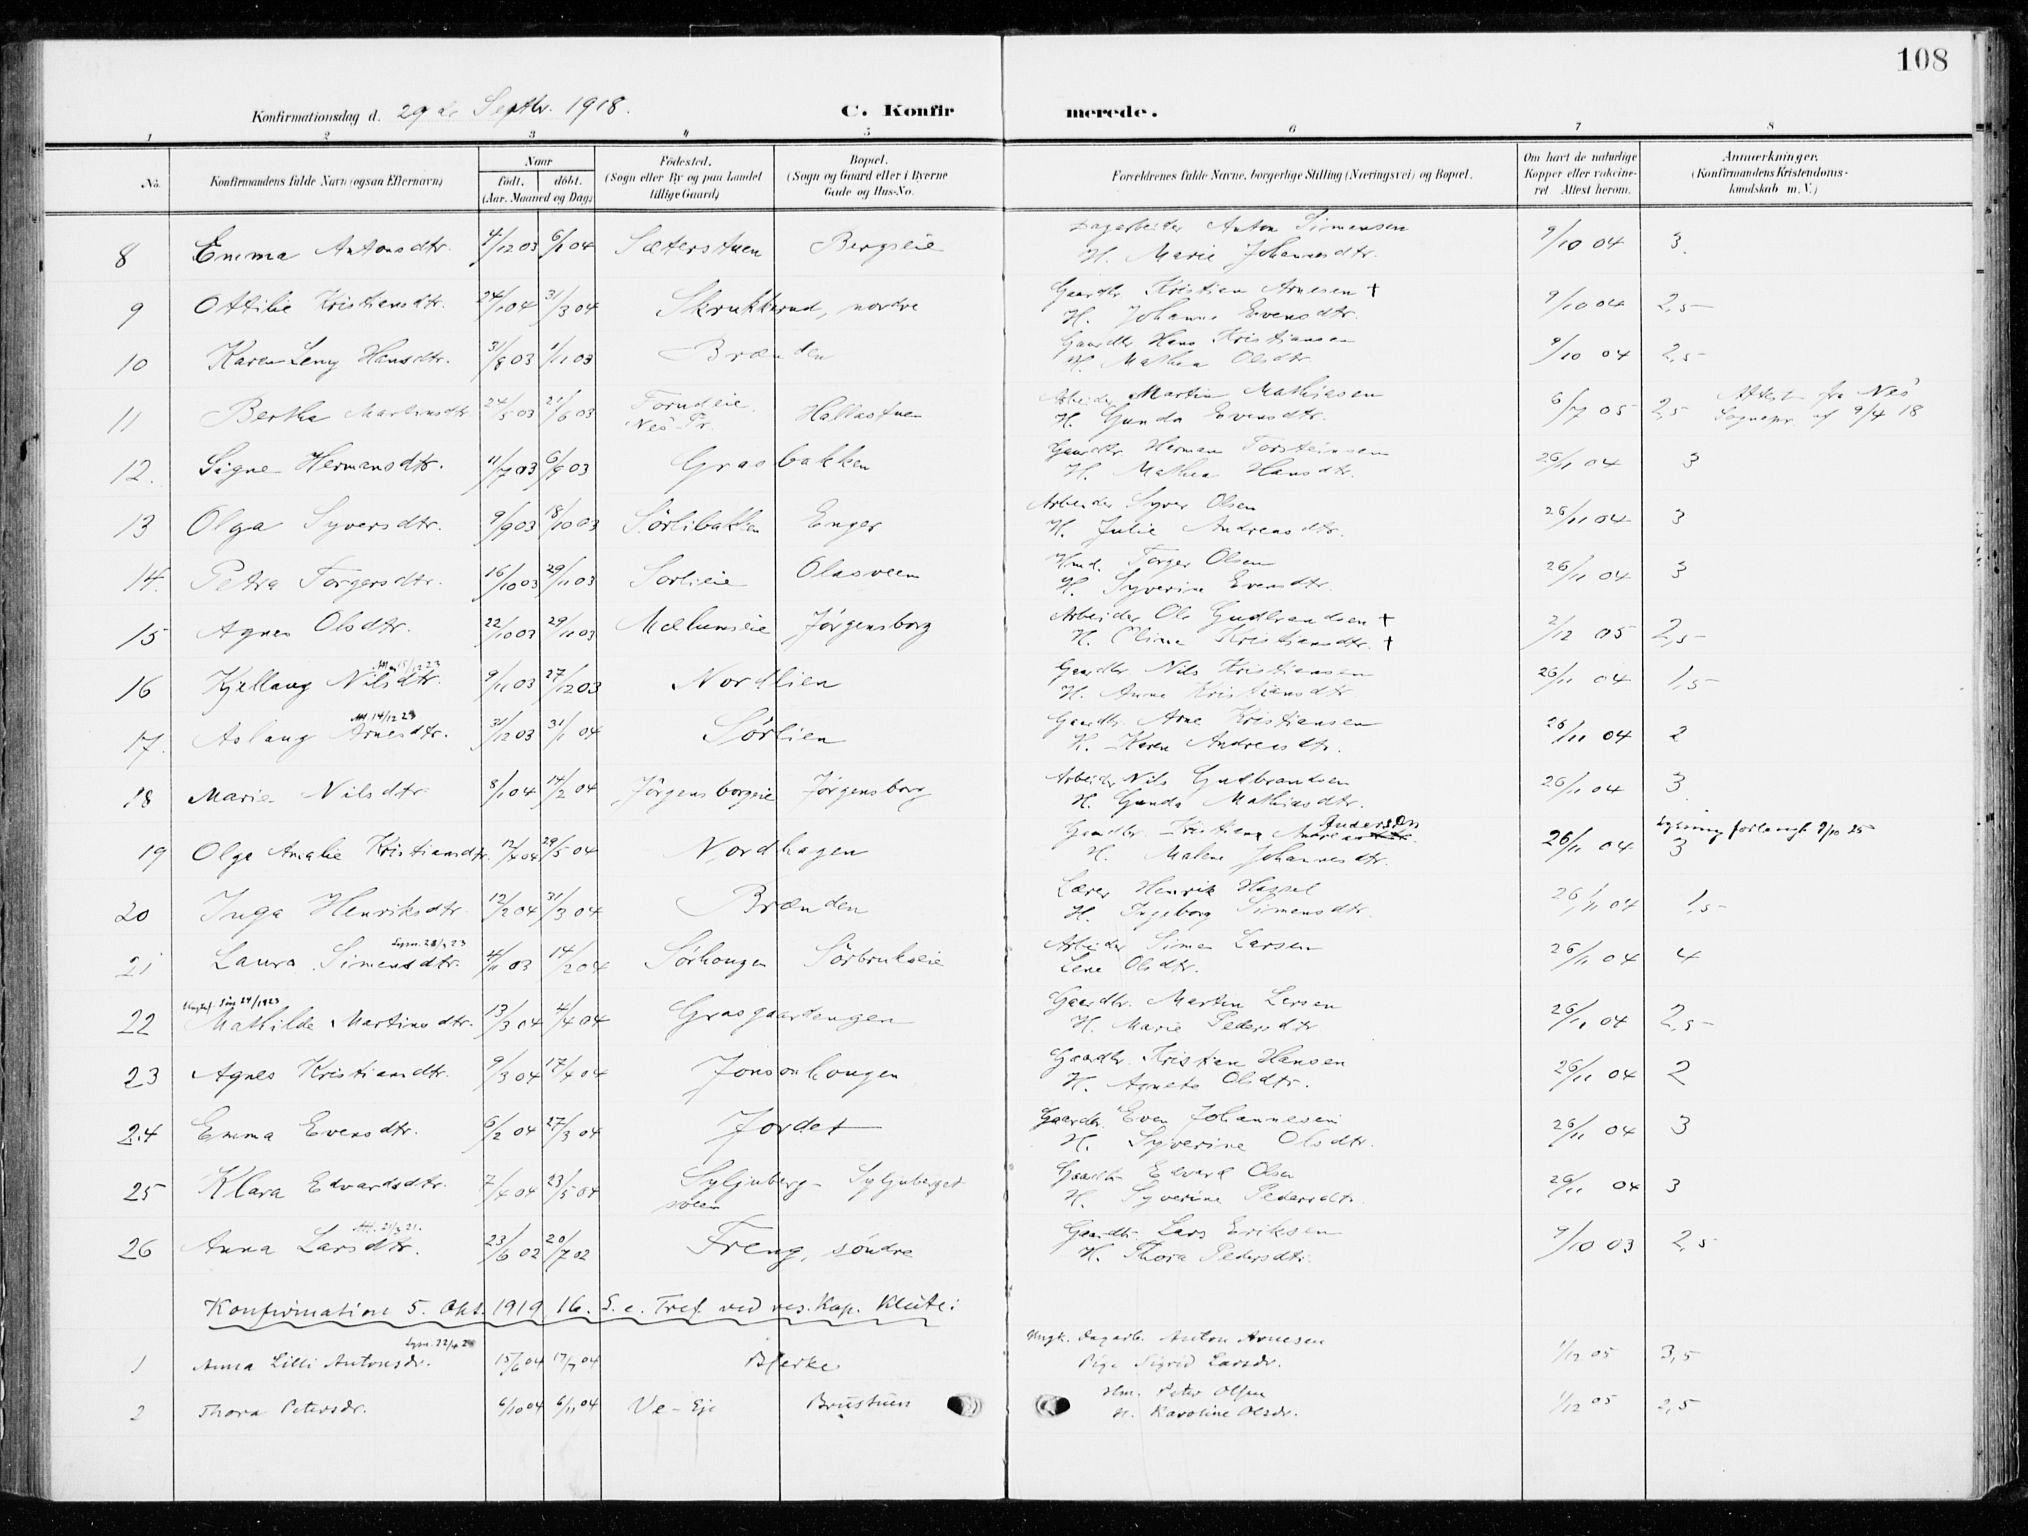 108
Konfirmationsdag d. 29de Septbr. 1918.
C. Konfirmerede.
1 2 3 4 5 6 7 8
No. Konfirmandens fulde Navn (ogsaa Efternavn) Naar født, døbt. (Aar, Maaned og Dag) Fødested. (Sogn eller By og paa Landet tillige Gaard) Bopæl. (Sogn og Gaard eller i Byerne Gade og Hus-No. Forældrenes fulde Navne, borgerlige Stilling (Næringsvei) og Bopæl. Om havt de naturlige Kopper eller vakcineret Attest herom. Anmærkninger. (Konfirmandens Kristendomskundskab m. V.)
8 Emma Antonsdtr. 4/12 03 6/1 04 Sæterstuen Bergseie Dagarbeider Anton Simensen 9/10 04 3.
H. Marie Johannesdtr.
9 Ottilie Kristiansdtr. 24/1 04 31/3 04 Skrukkerud, nordre Gaardbr. Kristian Arnesen + 9/10 04 2,5
H. Johanne Evensdtr.
10 Karen Leny Hansdtr. 31/8 03 1/11 03 Brænden Gaardbr. Hans Kristiansen 9/10 04 2,5
H. Mathea Olsdtr.
11 Bertha Martinsdtr. 24/5 03 21/6 03 Forudeie, Nes Pr. Hallastuen Arbeider Martin Mathiesen 6/7 05 2,5 Attest fra Nes
H. Gunda Evensdtr. Sognepr. af 9/4 18
12. Signe Hermansdtr. 11/7 03 6/9 03 Grasbakken Gaardbr. Herman Torsteinsen 26/11 04 3
H. Mathea Hansdtr.
13 Olga Syversdtr. 9/9 03 18/10 03 Sörlibakken Enger Arbeider Syver Olsen 26/11 04 3
H. Julie Andreasdtr.
14. Petra Torgersdtr. 16/10 03 29/11 03 Sorlieie Olasveen Hmd. Torger Olsen 26/11 04 3
H. Syverine Evensdtr.
15 Agnes Olsdtr. 22/10 03 29/11 03 Mælumseie Jørgensborg Arbeider Ole Gudbrandsen + 2/12 05 2,5
H. Oline Kristiansdtr. +
16 Kjellaug Nilsdtr. 9/11 03 27/12 03 Nordlien Gaardbr. Nils Kristiansen 26/11 04 1,5
H. Anne Kristiansdtr.
Att. 14/12 23
17. Aslaug Arnesdtr. 31/12 03 31/1 04 Sørlien Gaardbr. Arne Kristiansen 26/11 04 2
H. Karen Andreasdtr.
18 Marie Nilsdtr. 8/1 04 14/2 04 Jörgensborgeie Jørgensborg Arbeider Nils Gudbrandsen 26/11 04 3
H. Gunda Mathiasdtr.
19 Olga Amalie Kristiansdtr. 12/4 04 29/5 04 Nordhagen Gaardbr. Kristian Andersen 26/11 04 3 Lysning forlangt 9/10 25
H. Malene Johannesdtr.
20 Inga Henriksdtr. 12/2 04 31/3 04 Brænden Lærer Henrik Hassel 26/11 04 1,5
H. Ingeborg Simensdtr.
21 Laura Simensdtr. 4/11 03 14/2 04 Sörhougen Sörbrukseie Arbeider Simen Larsen 26/11 04 4
Lene Olsdtr.
22 Mathilde Martinsdtr. 13/3 04 4/4 04 Grasgaartengen Gaardbr. Martin Larsen 26/11 04 2,5
H. Marie Pedersdtr.
23 Agnes Kristiansdtr. 9/3 04 17/4 04 Jonsonhougen Gaardbr. Kristian Hansen 26/11 04 2
H. Agnete Olsdtr.
24 Emma Evensdtr. 6/2 04 27/3 04 Jordet Gaardbr. Even Johannesen 26/11 04 3
H. Syverine Olsdtr.
25 Klara Edvardsdtr. 7/4 04 23/5 04 Syljuberg-sveen Syljuberget Gaardbr. Edvard Olsen 26/11 04 3
H. Syverine Pedersdtr.
26 Anna Larsdtr. 23/6 02 20/7 02 Freng, søndre Gaardbr. Lars Eriksen 9/10 03 2,5
H. Thora Pedersdtr.
Konfirmation 5. Okt. 1919 16. S. e. Tref. ved res. Kap. Klüte:
1 Anna Lilli Antonsdr. 15/6 04 17/7 04 Bjerke Ungk. Dagarb. Anton Arnesen 1/12 05 3,5
Pige Sigrid Larsdr.
2 Thora Petersdr. 6/10 04 6/11 04 Ve-Eje Brustuen Hm. Peter Olsen 1/12 05 2,5
H. Karoline Olsdr.